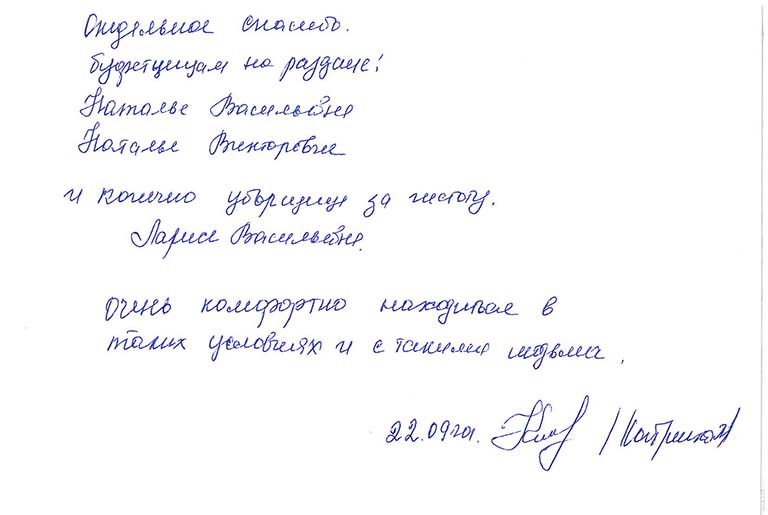 Отдельное спасибо.
буфетчицам на раздаче!
Наталье Васильевне
Наталье Викторовне
и конечно уборщице за чистоту.
Ларисе Васильевне.
очень комфортно находиться в
таких условиях и с такими людьми.
22.09